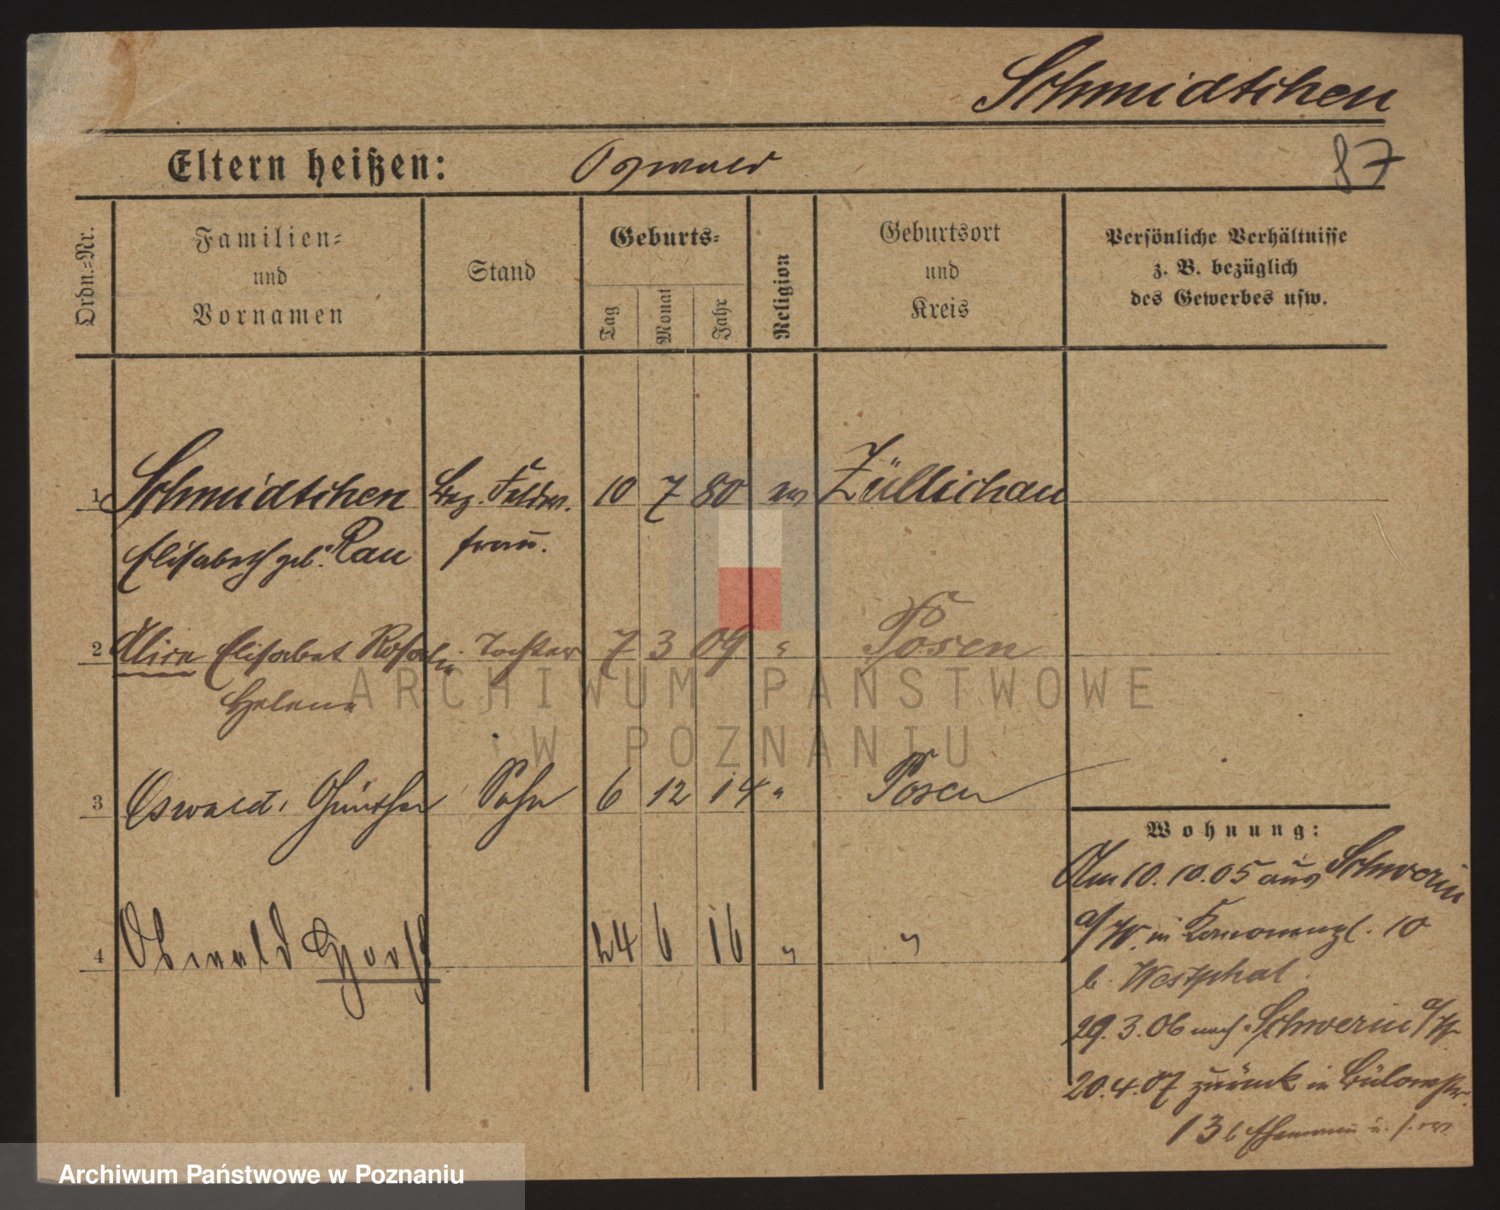 Schmidtchen
Eltern heißen: Oswald
87
Ordn.=Nr.
Familien=
und
Vornamen
Stand
Geburts=
Tag
Monat
Jahr
Religion
Geburtsort
und
Kreis
Persönliche Verhältnisse
z. B. bezüglich
des Gewerbes usw.
1 Schmidtchen Bez. Feldw. 10 7 80 ev Züllichau
Elisabeth geb. Rau frau.
2 Alice Elisabet Rosalie Tochter 7 3 09 " Posen
Helene
3 Oswald, Günther Sohn 6 12 14 " Posen
4 Oswald Horst 24 6 16 " "
Wohnung:
Am 10.10.05 aus Schwerin
a/W. in 10
b. Westphal.
29.3.06 nach Schwerin a/W
20.4.07 zurück in Bülowstr.
13 b
ARCHIWUM PAŃSTWOWE
W POZNANIU
Archiwum Państwowe w Poznaniu